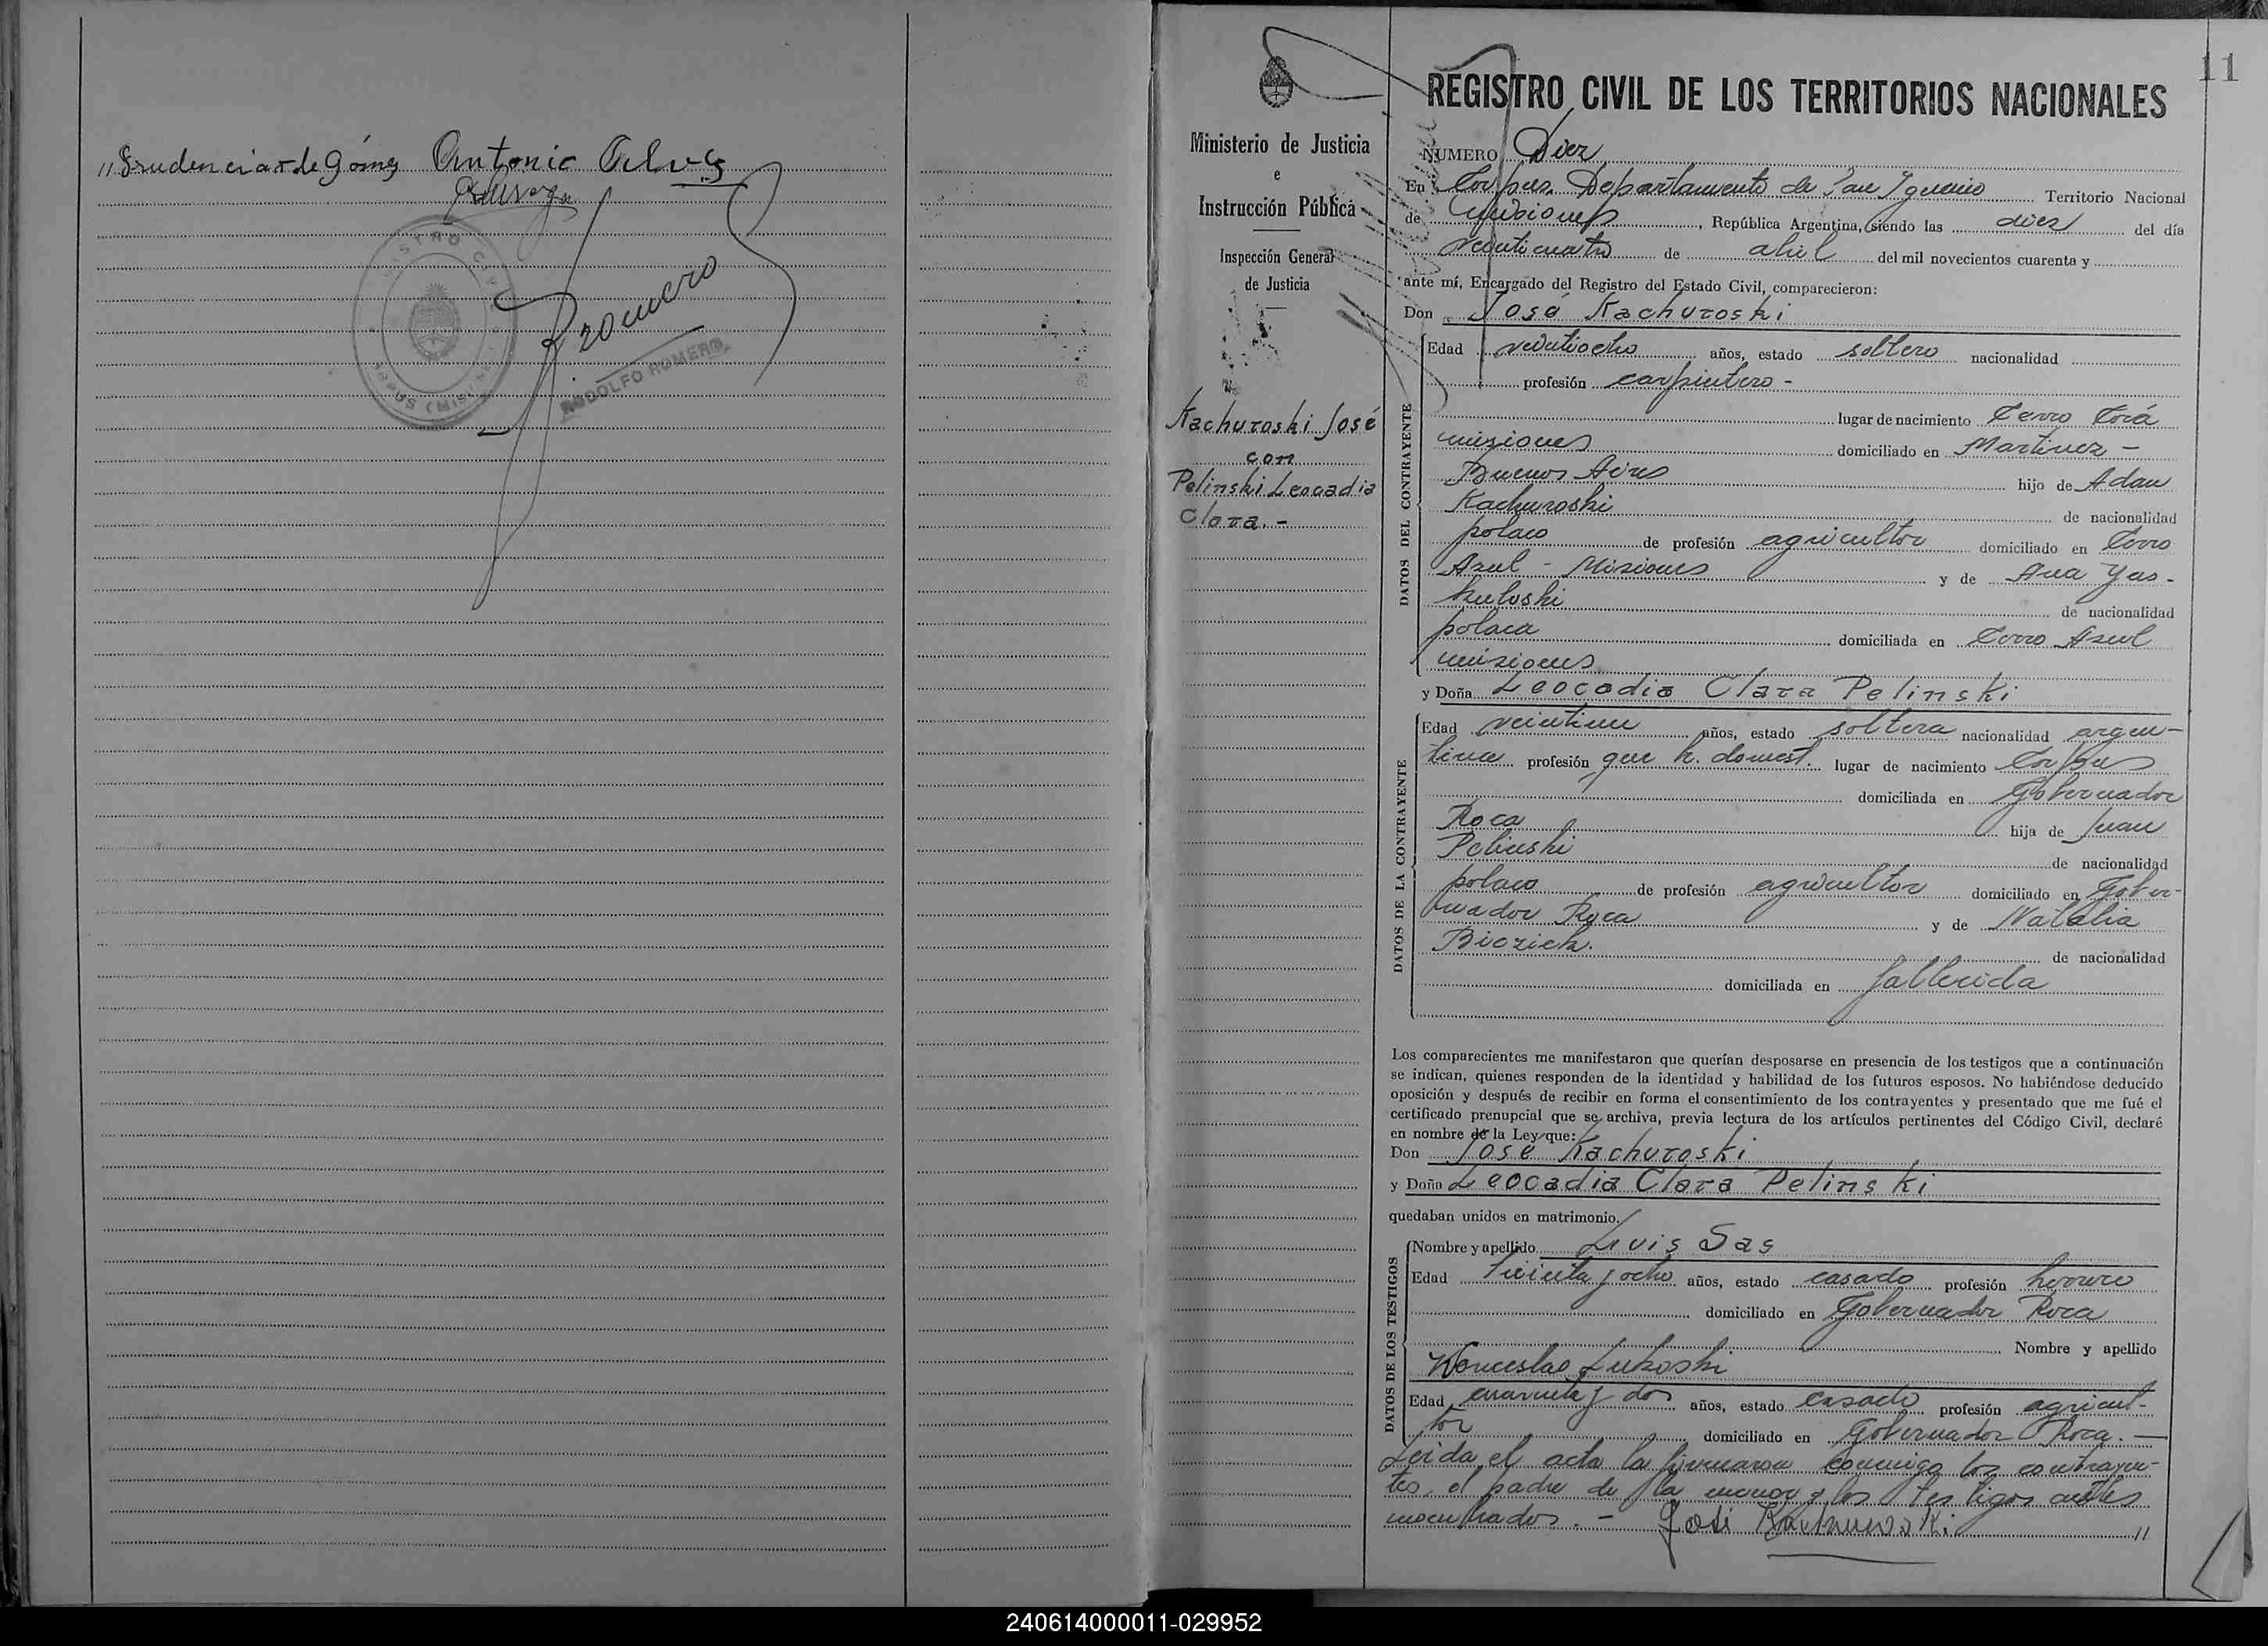 "Prudencia r de Gómez Antonio
Romero
REGISTRO CIVIL
RODOLFO ROMERO
11
REGISTRO CIVIL DE LOS TERRITORIOS NACIONALES
Ministerio de Justicia
e
Instrucción Pública
Inspección General
de Justicia
Kachuroski José
con
Pelinski Leocadia
Clara.-
NUMERO Diez
En Corpus, Departamento de San Ignacio Territorio Nacional
de Misiones, República Argentina, siendo las diez del día
veinticuatro de abril del mil novecientos cuarenta y
ante mí, Encargado del Registro del Estado Civil, comparecieron:
Don José Kachuroski
DATOS DEL CONTRAYENTE
Edad veintiocho años, estado soltero nacionalidad
profesión carpintero -
lugar de nacimiento Cerro Corá
misiones domiciliado en Martinez -
Buenos Aires hijo de Adan
Kachuroski de nacionalidad
polaco de profesión agricultor domiciliado en Cerro
Azul - Misiones y de Ana Yas-
kuloski de nacionalidad
polaca domiciliada en Cerro Azul
misiones
y Doña Leocadia Clara Pelinski
DATOS DE LA CONTRAYENTE
Edad veintiun años, estado soltera nacionalidad argen-
tina profesión que h. domest. lugar de nacimiento Corpus
domiciliada en Gobernador
Roca hija de Juan
Pelinski de nacionalidad
polaco de profesión agricultor domiciliado en Gober-
nador Roca y de Natalia
Biozich. de nacionalidad
domiciliada en fallecida
Los comparecientes me manifestaron que querían desposarse en presencia de los testigos que a continuación
se indican, quienes responden de la identidad y habilidad de los futuros esposos. No habiéndose deducido
oposición y después de recibir en forma el consentimiento de los contrayentes y presentado que me fué el
certificado prenupcial que se archiva, previa lectura de los artículos pertinentes del Código Civil, declaré
en nombre de la Ley que:
Don José Kachuroski
y Doña Leocadia Clara Pelinski
quedaban unidos en matrimonio.
DATOS DE LOS TESTIGOS
Nombre y apellido Luis Sas
Edad treinta y ocho años, estado casado profesión herrero
domiciliado en Gobernador Roca
Nombre y apellido
Wenceslao Lukoski
Edad cuarenta y dos años, estado casado profesión agricul-
tor domiciliado en Gobernador Roca. -
Leida el acta la firmaron conmigo los contrayen-
tes, el padre de la menor y los testigos antes
nombrados. - José Kachuroski "
240614000011-029952